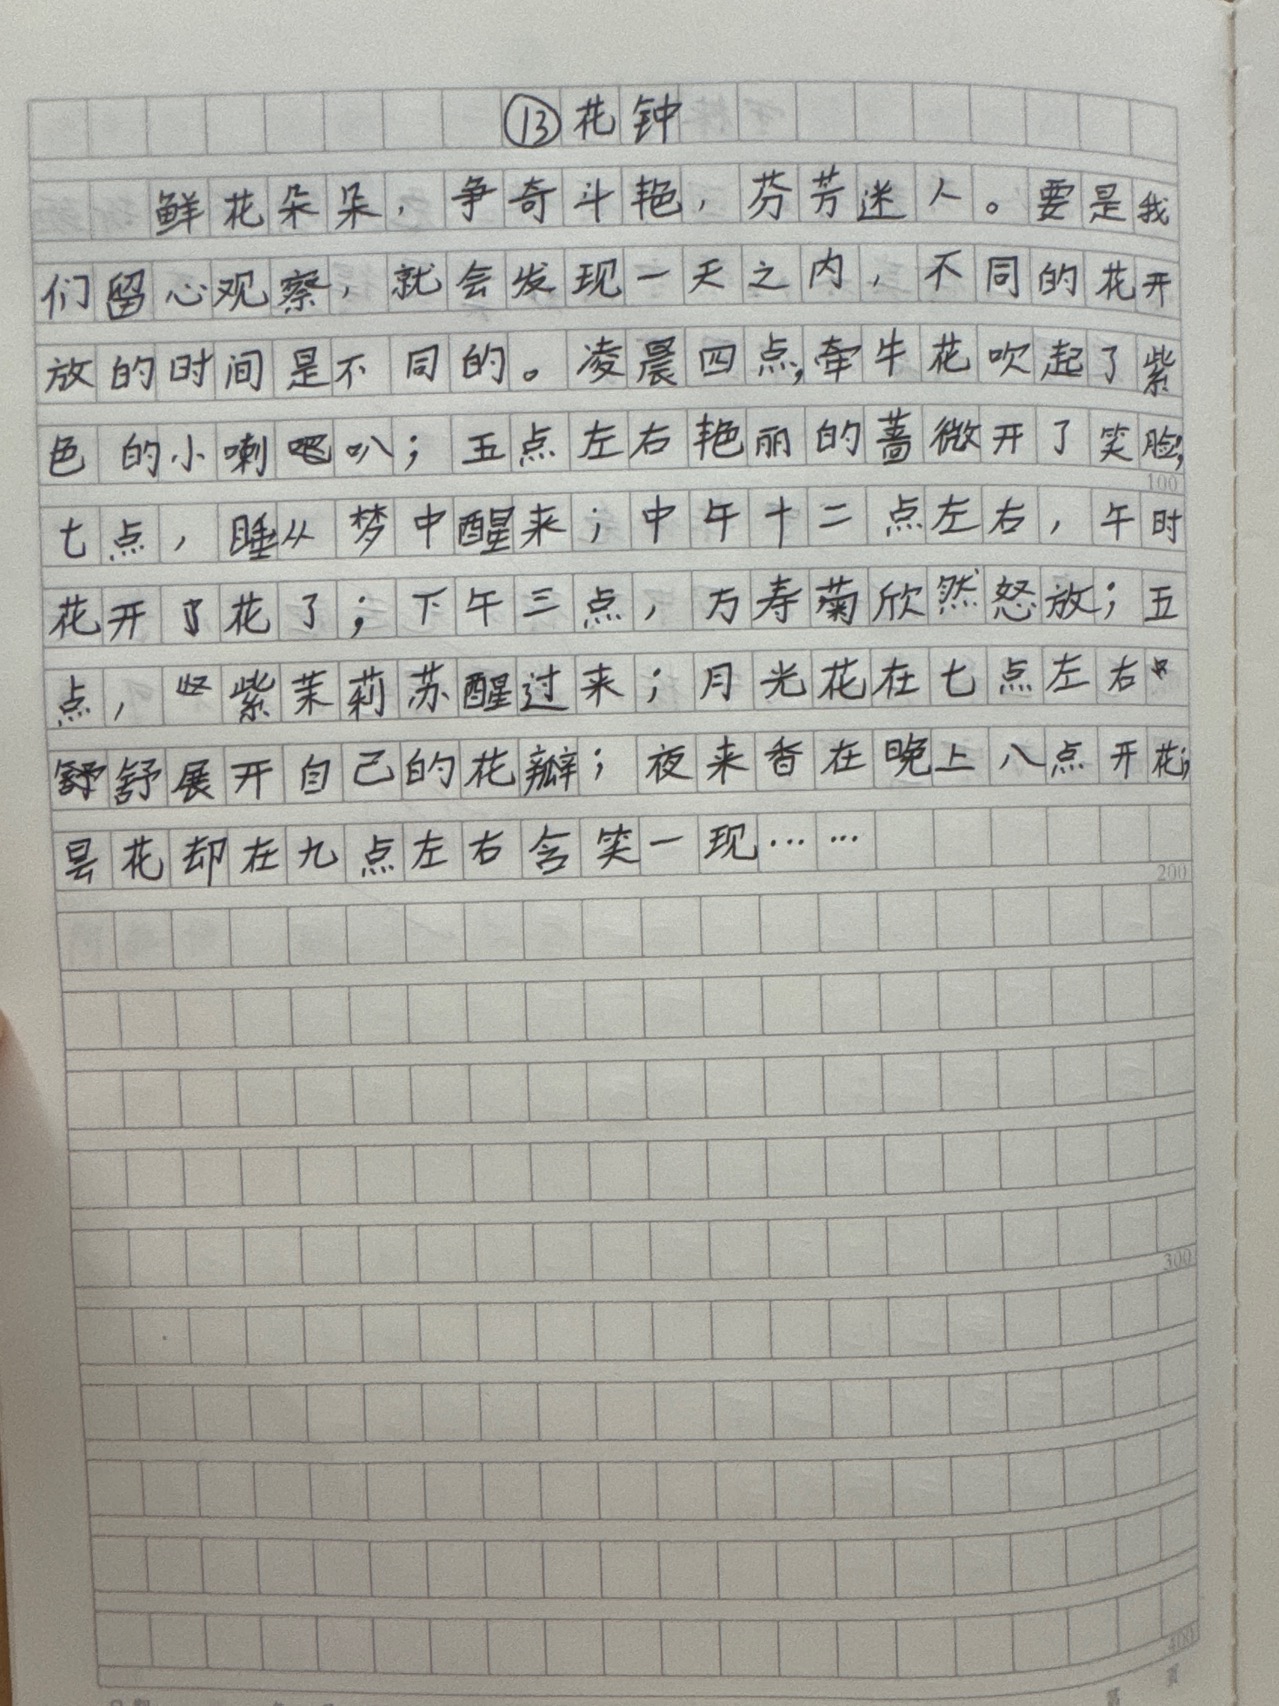 ⑬花钟
鲜花朵朵，争奇斗艳，芬芳迷人。要是我
们留心观察，就会发现一天之内，不同的花开
放的时间是不同的。凌晨四点，牵牛花吹起了紫
色的小喇叭；五点左右艳丽的蔷薇开了笑脸，
七点，睡从梦中醒来；中午十二点左右，午时
花开了花了；下午三点，万寿菊欣然怒放；五
点，紫茉莉苏醒过来；月光花在七点左右
舒舒展开自己的花瓣；夜来香在晚上八点开花；
昙花却在九点左右含笑一现……
100
200
300
400